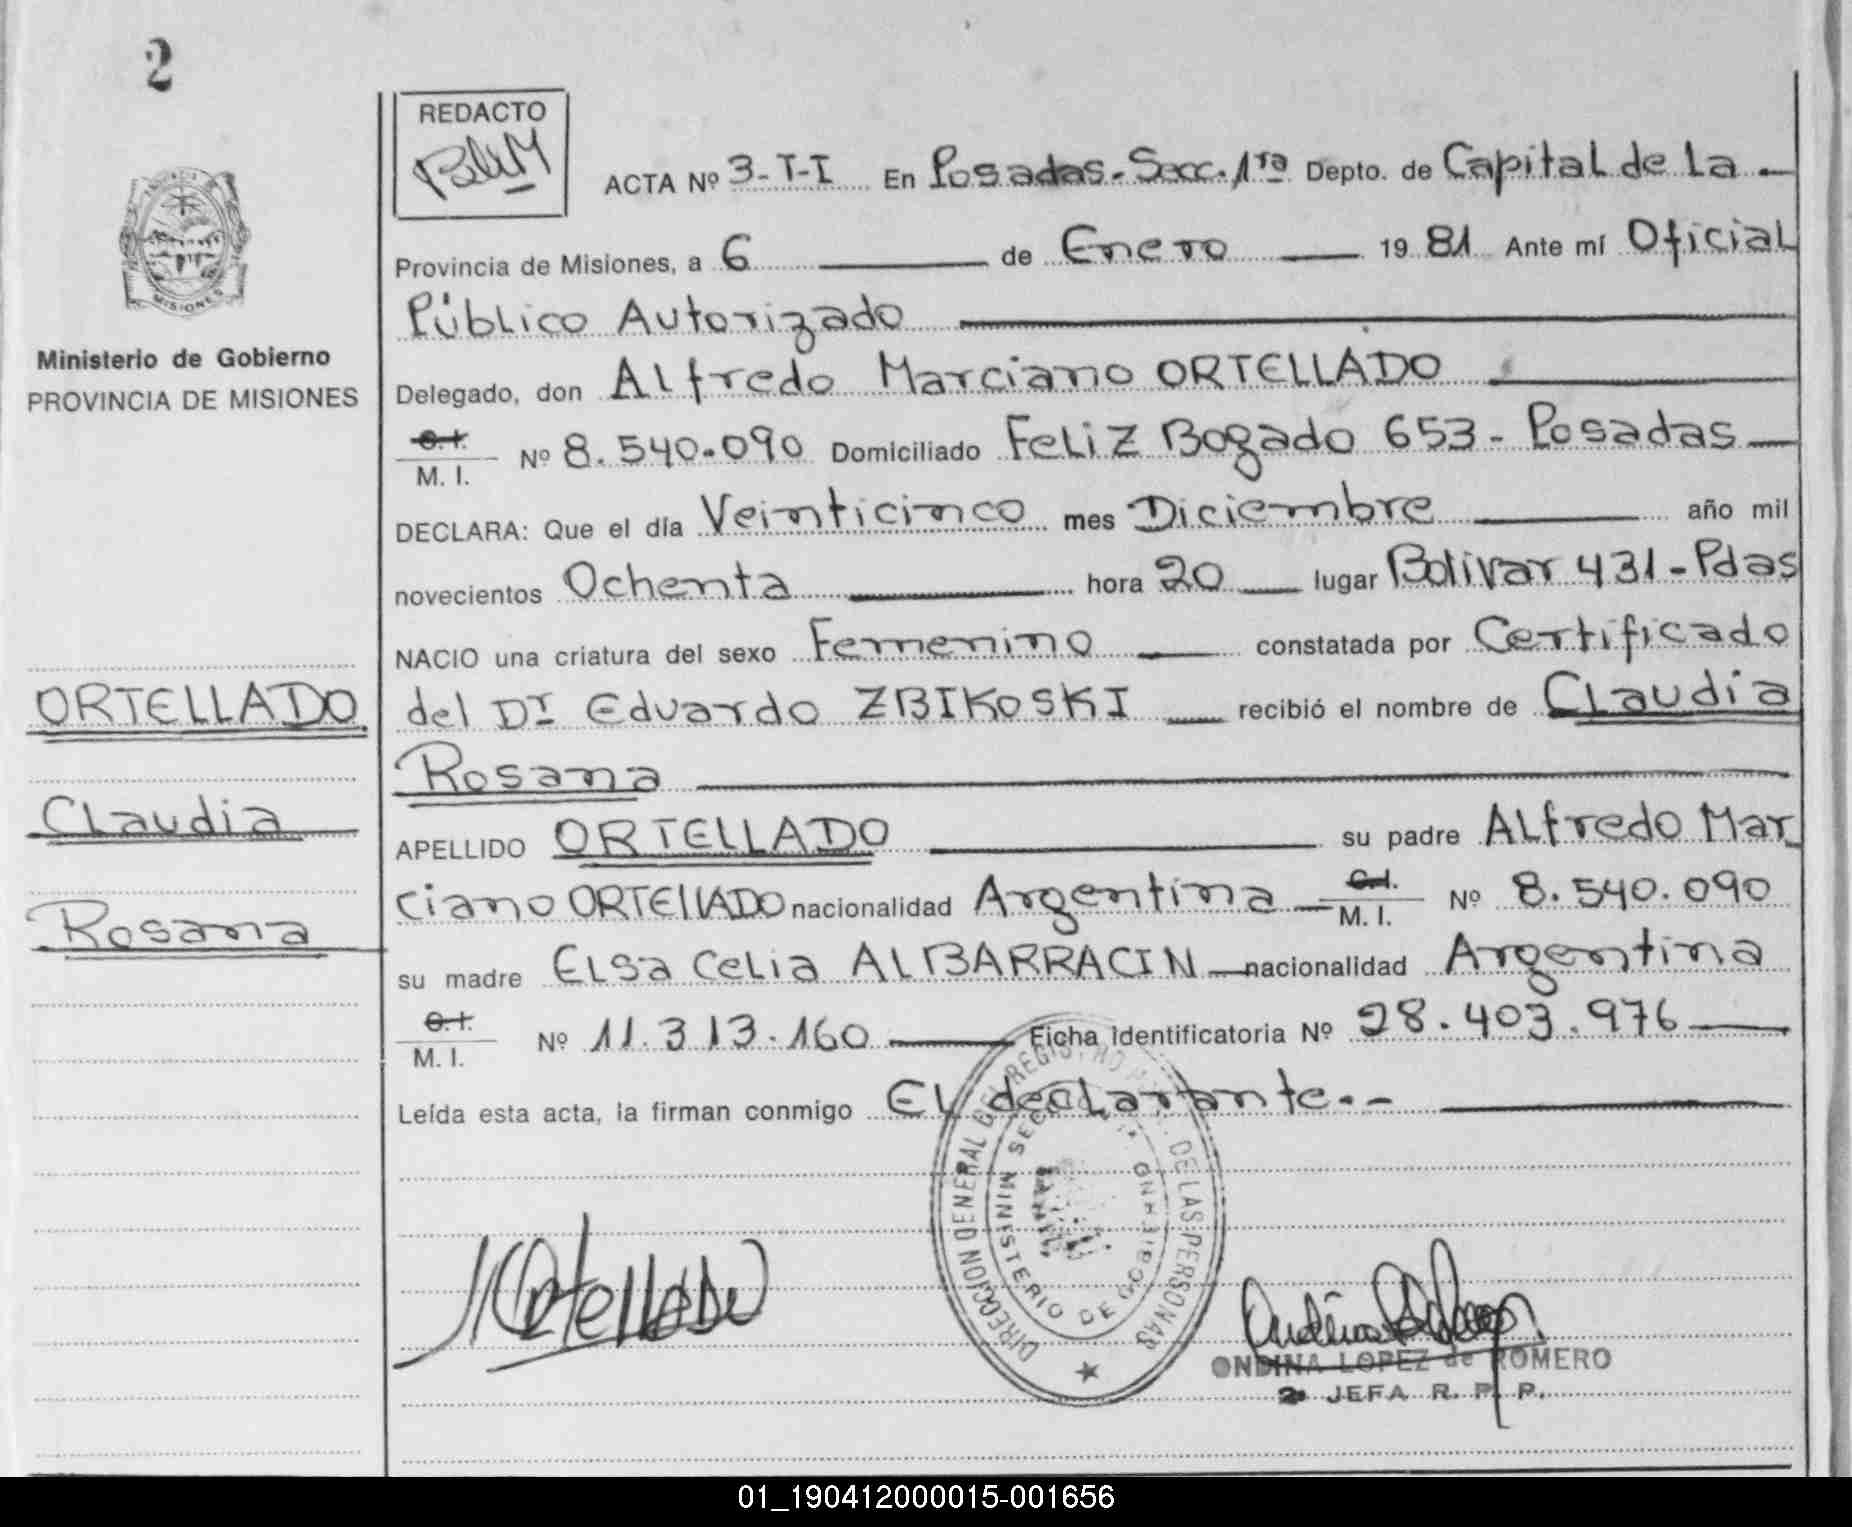 2
REDACTO
ACTA Nº 3-T-I En Posadas-Secc. 1ra Depto. de Capital de La
Provincia de Misiones, a 6 de Enero 1981 Ante mí Oficial
Público Autorizado
Delegado, don Alfredo Marciano ORTELLADO
C.I.
M. I. Nº 8.540.090 Domiciliado Feliz Bogado 653 - Posadas
DECLARA: Que el día Veinticinco mes Diciembre año mil
novecientos Ochenta hora 20 lugar Bolivar 431 - Pdas
NACIO una criatura del sexo Femenino constatada por Certificado
del Dr Eduardo ZBIKOSKI recibió el nombre de Claudia
Rosana
APELLIDO ORTELLADO su padre Alfredo Mar
ciano ORTELLADO nacionalidad Argentina C.I. M. I. Nº 8.540.090
su madre Elsa Celia ALBARRACIN nacionalidad Argentina
C.I.
M. I. Nº 11.313.160 Ficha Identificatoria Nº 28.403.976
Leída esta acta, la firman conmigo El declarante.-
MISIONES
Ministerio de Gobierno
PROVINCIA DE MISIONES
ORTELLADO
Claudia
Rosana
DIRECCION GENERAL DEL REGISTRO DE LAS PERSONAS
MINISTERIO DE GOBIERNO
Ortellado
ONDINA LOPEZ de ROMERO
2ª JEFA R. P. P.
01_190412000015-001656